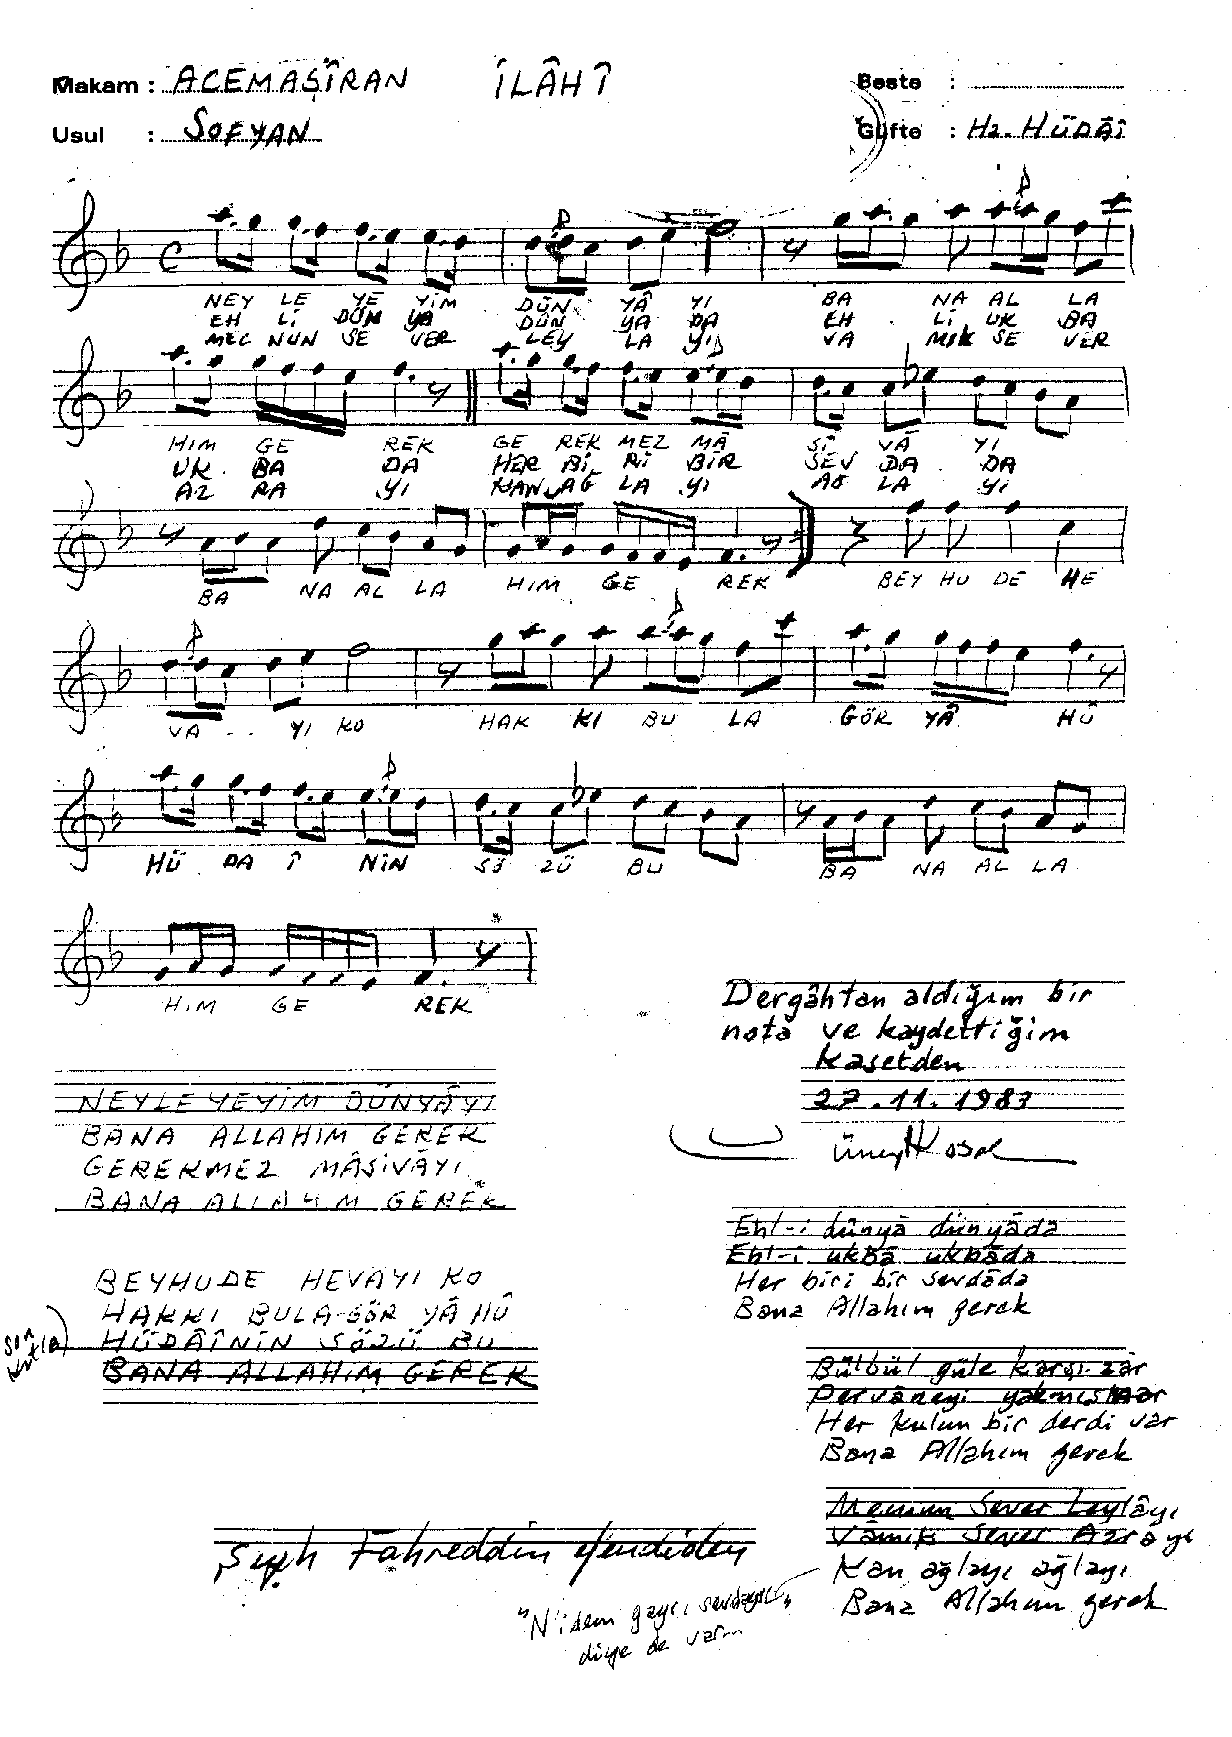 Makam : ACEMAŞİRAN İLÂHÎ Beste :
Usul : SOFYAN Güfte : Hz. HÜDÂÎ
NEY LE YE YİM DÜN YÂ YI BA NA AL LA
EH Lİ DÜN YA DÜN YA DA EH Lİ UK BA
MEC NUN SE VER LEY LA YI VA MIK SE VER
HIM GE REK GE REK MEZ MÂ Sİ VÂ YI
UK BA DA HER Bİ Rİ BİR SEV DA DA
AZ RA YI KAN AĞ LA YI AĞ LA YI
BA NA AL LA HIM GE REK BEY HU DE HE
VA YI KO HAK KI BU LA GÖR YÂ HÛ
HÜ DA Î NİN SÖ ZÜ BU BA NA AL LA
HIM GE REK
Dergâhtan aldığım bir
nota ve kaydettiğim
kasetden
27.11.1983
NEYLEYEYİM DÜNYÂYI
BANA ALLAHIM GEREK
GEREKMEZ MÂSİVÂYI
BANA ALLAHIM GEREK
Ehl-i dünyâ dünyâda
Ehl-i ukbâ ukbâda
Her biri bir sevdâda
Bana Allahım gerek
BEYHUDE HEVAYI KO
HAKKI BULA-GÖR YÂ HÛ
HÜDÂÎNİN SÖZÜ BU
BANA ALLAHIM GEREK
son
Bülbül güle karşı zâr
Pervâneyi yakmış nar
Her kulun bir derdi var
Bana Allahım gerek
Mecnun sever Leylâyı
Vâmık sever Azrayı
Kan ağlayı ağlayı
Bana Allahım gerek
Şeyh Fahreddin efendiden
"N'idem gayrı sevdayı"
diye de var